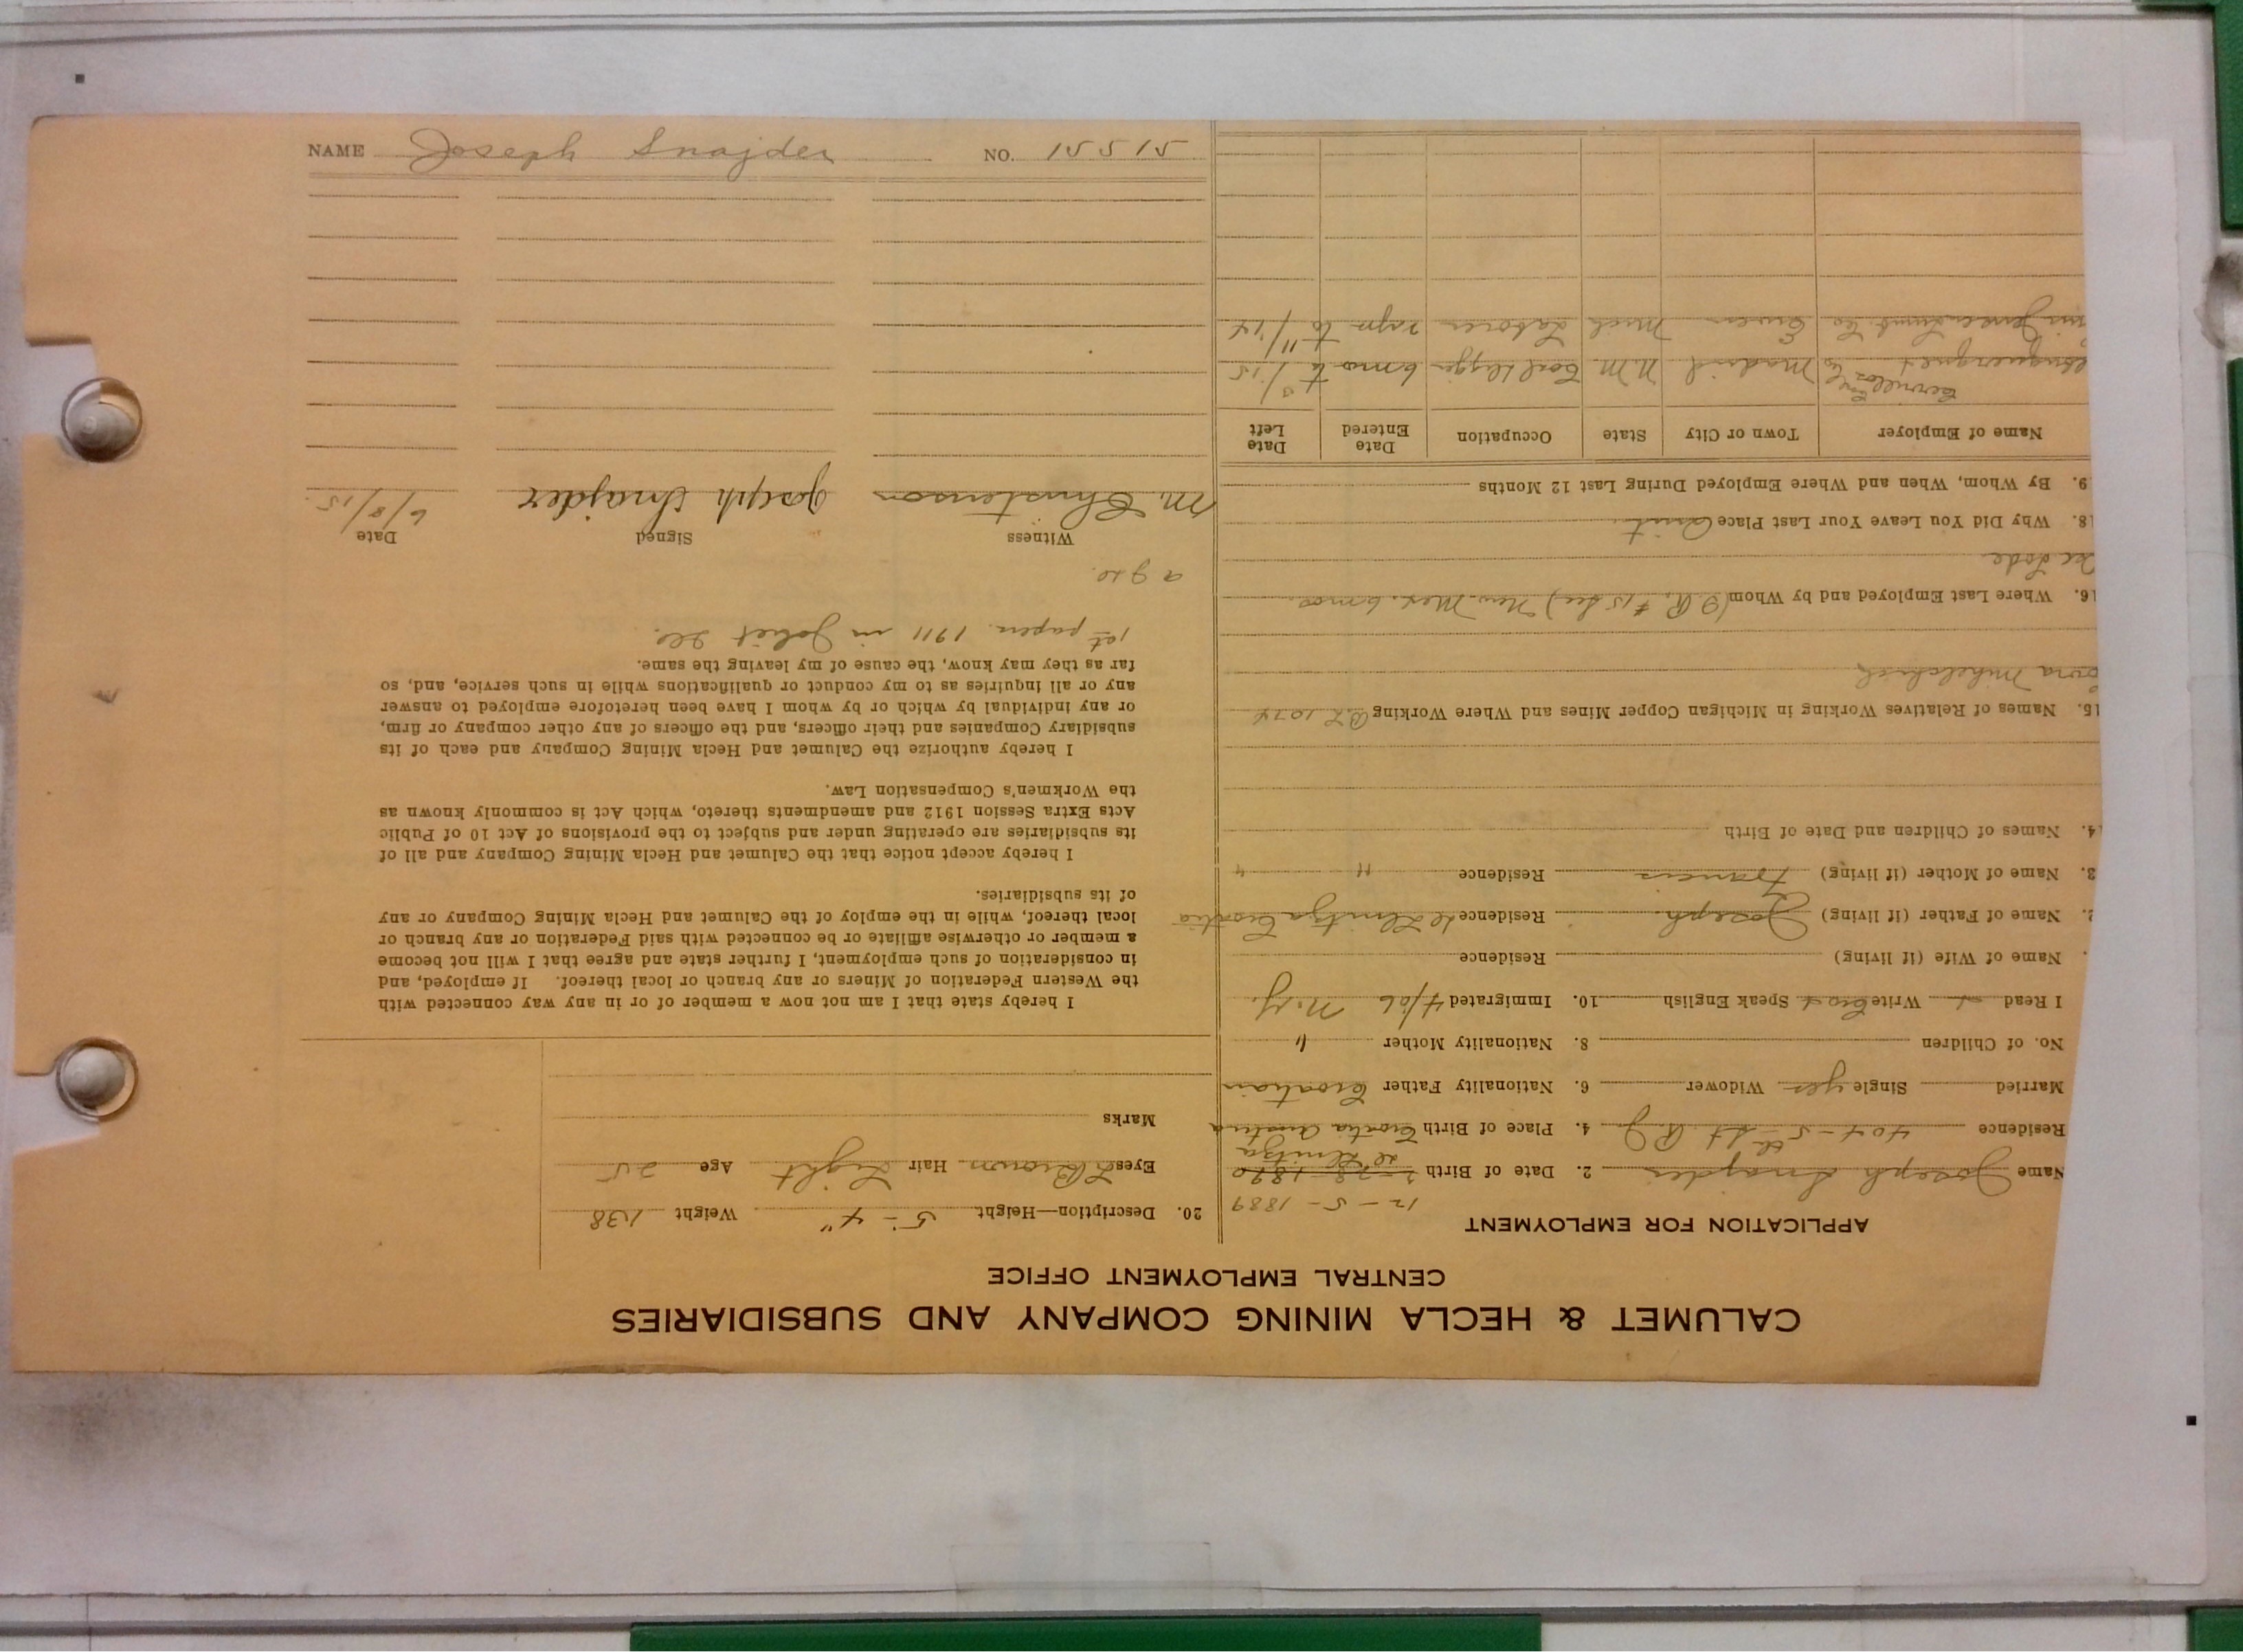 CALUMET & HECLA MINING COMPANY AND SUBSIDIARIES
CENTRAL EMPLOYMENT OFFICE
APPLICATION FOR EMPLOYMENT
12 - 5 - 1889
Name Joseph Snajder 2. Date of Birth 2-28-1890
Residence 404 - 5th St R J 4. Place of Birth Croatia Austria
Married Single yes Widower 6. Nationality Father Croatian
No. of Children 8. Nationality Mother "
I Read Write Croat Speak English 10. Immigrated 4/06 N.Y.
Name of Wife (if living) Residence
2. Name of Father (if living) Joseph Residence Croatia
3. Name of Mother (if living) Francis Residence " "
14. Names of Children and Date of Birth
15. Names of Relatives Working in Michigan Copper Mines and Where Working
16. Where Last Employed and by Whom New Mex. 6 mos.
Lode
18. Why Did You Leave Your Last Place Quit
19. By Whom, When and Where Employed During Last 12 Months
Name of Employer Town or City State Occupation Date Entered Date Left
Cerrillos Coal
Co Madrid N.M. Coal 6 mos to 5/15
Lumb. Co Ewen Mich Laborer to 11/14
20. Description—Height 5 - 4" Weight 138
Eyes Brown Hair Light Age 25
Marks
I hereby state that I am not now a member of or in any way connected with
the Western Federation of Miners or any branch or local thereof. If employed, and
in consideration of such employment, I further state and agree that I will not become
a member or otherwise affiliate or be connected with said Federation or any branch or
local thereof, while in the employ of the Calumet and Hecla Mining Company or any
of its subsidiaries.
I hereby accept notice that the Calumet and Hecla Mining Company and all of
its subsidiaries are operating under and subject to the provisions of Act 10 of Public
Acts Extra Session 1912 and amendments thereto, which Act is commonly known as
the Workmen's Compensation Law.
I hereby authorize the Calumet and Hecla Mining Company and each of its
subsidiary Companies and their officers, and the officers of any other company or firm,
or any individual by which or by whom I have been heretofore employed to answer
any or all inquiries as to my conduct or qualifications while in such service, and, so
far as they may know, the cause of my leaving the same.
1st paper. 1911 in Joliet Ill.
Witness Signed Date
M. Christenson Joseph Snajder 6/8/15.
NAME Joseph Snajder NO. 15515